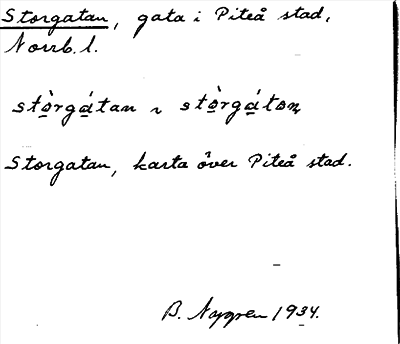 Storgatan, gata i Piteå stad,
Norrb. l.
stò̱rgá̱tan ~ stò̱rgá̱ton
Storgatan, karta över Piteå stad.
B. Nygren 1934.